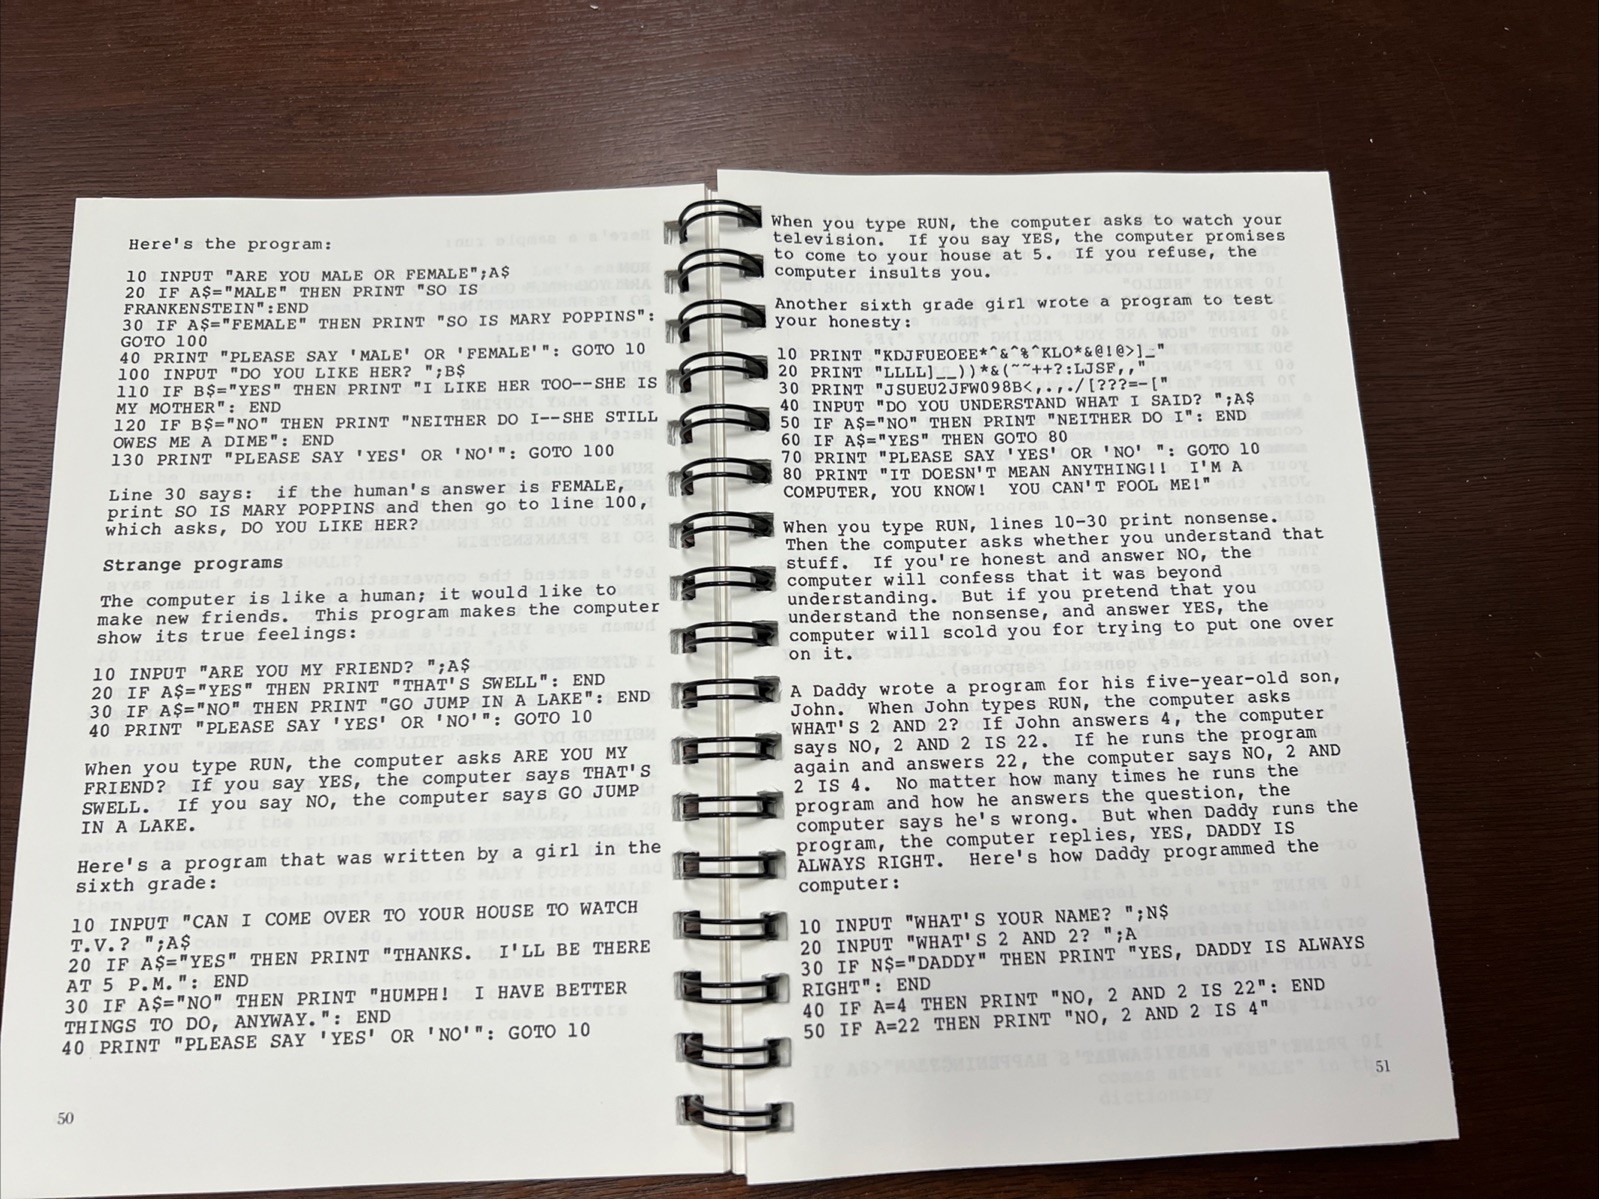 Here's the program:
10 INPUT "ARE YOU MALE OR FEMALE";A$
20 IF A$="MALE" THEN PRINT "SO IS
FRANKENSTEIN":END
30 IF A$="FEMALE" THEN PRINT "SO IS MARY POPPINS":
GOTO 100
40 PRINT "PLEASE SAY 'MALE' OR 'FEMALE'": GOTO 10
100 INPUT "DO YOU LIKE HER? ";B$
110 IF B$="YES" THEN PRINT "I LIKE HER TOO--SHE IS
MY MOTHER": END
120 IF B$="NO" THEN PRINT "NEITHER DO I--SHE STILL
OWES ME A DIME": END
130 PRINT "PLEASE SAY 'YES' OR 'NO'": GOTO 100
Line 30 says:  if the human's answer is FEMALE,
print SO IS MARY POPPINS and then go to line 100,
which asks, DO YOU LIKE HER?
Strange programs
The computer is like a human; it would like to
make new friends.  This program makes the computer
show its true feelings:
10 INPUT "ARE YOU MY FRIEND? ";A$
20 IF A$="YES" THEN PRINT "THAT'S SWELL": END
30 IF A$="NO" THEN PRINT "GO JUMP IN A LAKE": END
40 PRINT "PLEASE SAY 'YES' OR 'NO'": GOTO 10
When you type RUN, the computer asks ARE YOU MY
FRIEND?  If you say YES, the computer says THAT'S
SWELL.  If you say NO, the computer says GO JUMP
IN A LAKE.
Here's a program that was written by a girl in the
sixth grade:
10 INPUT "CAN I COME OVER TO YOUR HOUSE TO WATCH
T.V.? ";A$
20 IF A$="YES" THEN PRINT "THANKS.  I'LL BE THERE
AT 5 P.M.": END
30 IF A$="NO" THEN PRINT "HUMPH!  I HAVE BETTER
THINGS TO DO, ANYWAY.": END
40 PRINT "PLEASE SAY 'YES' OR 'NO'": GOTO 10
50
When you type RUN, the computer asks to watch your
television.  If you say YES, the computer promises
to come to your house at 5.  If you refuse, the
computer insults you.
Another sixth grade girl wrote a program to test
your honesty:
10 PRINT "KDJFUEOEE*^&^%^KLO*&@!@>]_"
20 PRINT "LLLL]__))*&(~~++?:LJSF,,"
30 PRINT "JSUEU2JFW098B<,.,./[???=-["
40 INPUT "DO YOU UNDERSTAND WHAT I SAID? ";A$
50 IF A$="NO" THEN PRINT "NEITHER DO I": END
60 IF A$="YES" THEN GOTO 80
70 PRINT "PLEASE SAY 'YES' OR 'NO' ": GOTO 10
80 PRINT "IT DOESN'T MEAN ANYTHING!!  I'M A
COMPUTER, YOU KNOW!  YOU CAN'T FOOL ME!"
When you type RUN, lines 10-30 print nonsense.
Then the computer asks whether you understand that
stuff.  If you're honest and answer NO, the
computer will confess that it was beyond
understanding.  But if you pretend that you
understand the nonsense, and answer YES, the
computer will scold you for trying to put one over
on it.
A Daddy wrote a program for his five-year-old son,
John.  When John types RUN, the computer asks
WHAT'S 2 AND 2?  If John answers 4, the computer
says NO, 2 AND 2 IS 22.  If he runs the program
again and answers 22, the computer says NO, 2 AND
2 IS 4.  No matter how many times he runs the
program and how he answers the question, the
computer says he's wrong.  But when Daddy runs the
program, the computer replies, YES, DADDY IS
ALWAYS RIGHT.  Here's how Daddy programmed the
computer:
10 INPUT "WHAT'S YOUR NAME? ";N$
20 INPUT "WHAT'S 2 AND 2? ";A
30 IF N$="DADDY" THEN PRINT "YES, DADDY IS ALWAYS
RIGHT": END
40 IF A=4 THEN PRINT "NO, 2 AND 2 IS 22": END
50 IF A=22 THEN PRINT "NO, 2 AND 2 IS 4"
51